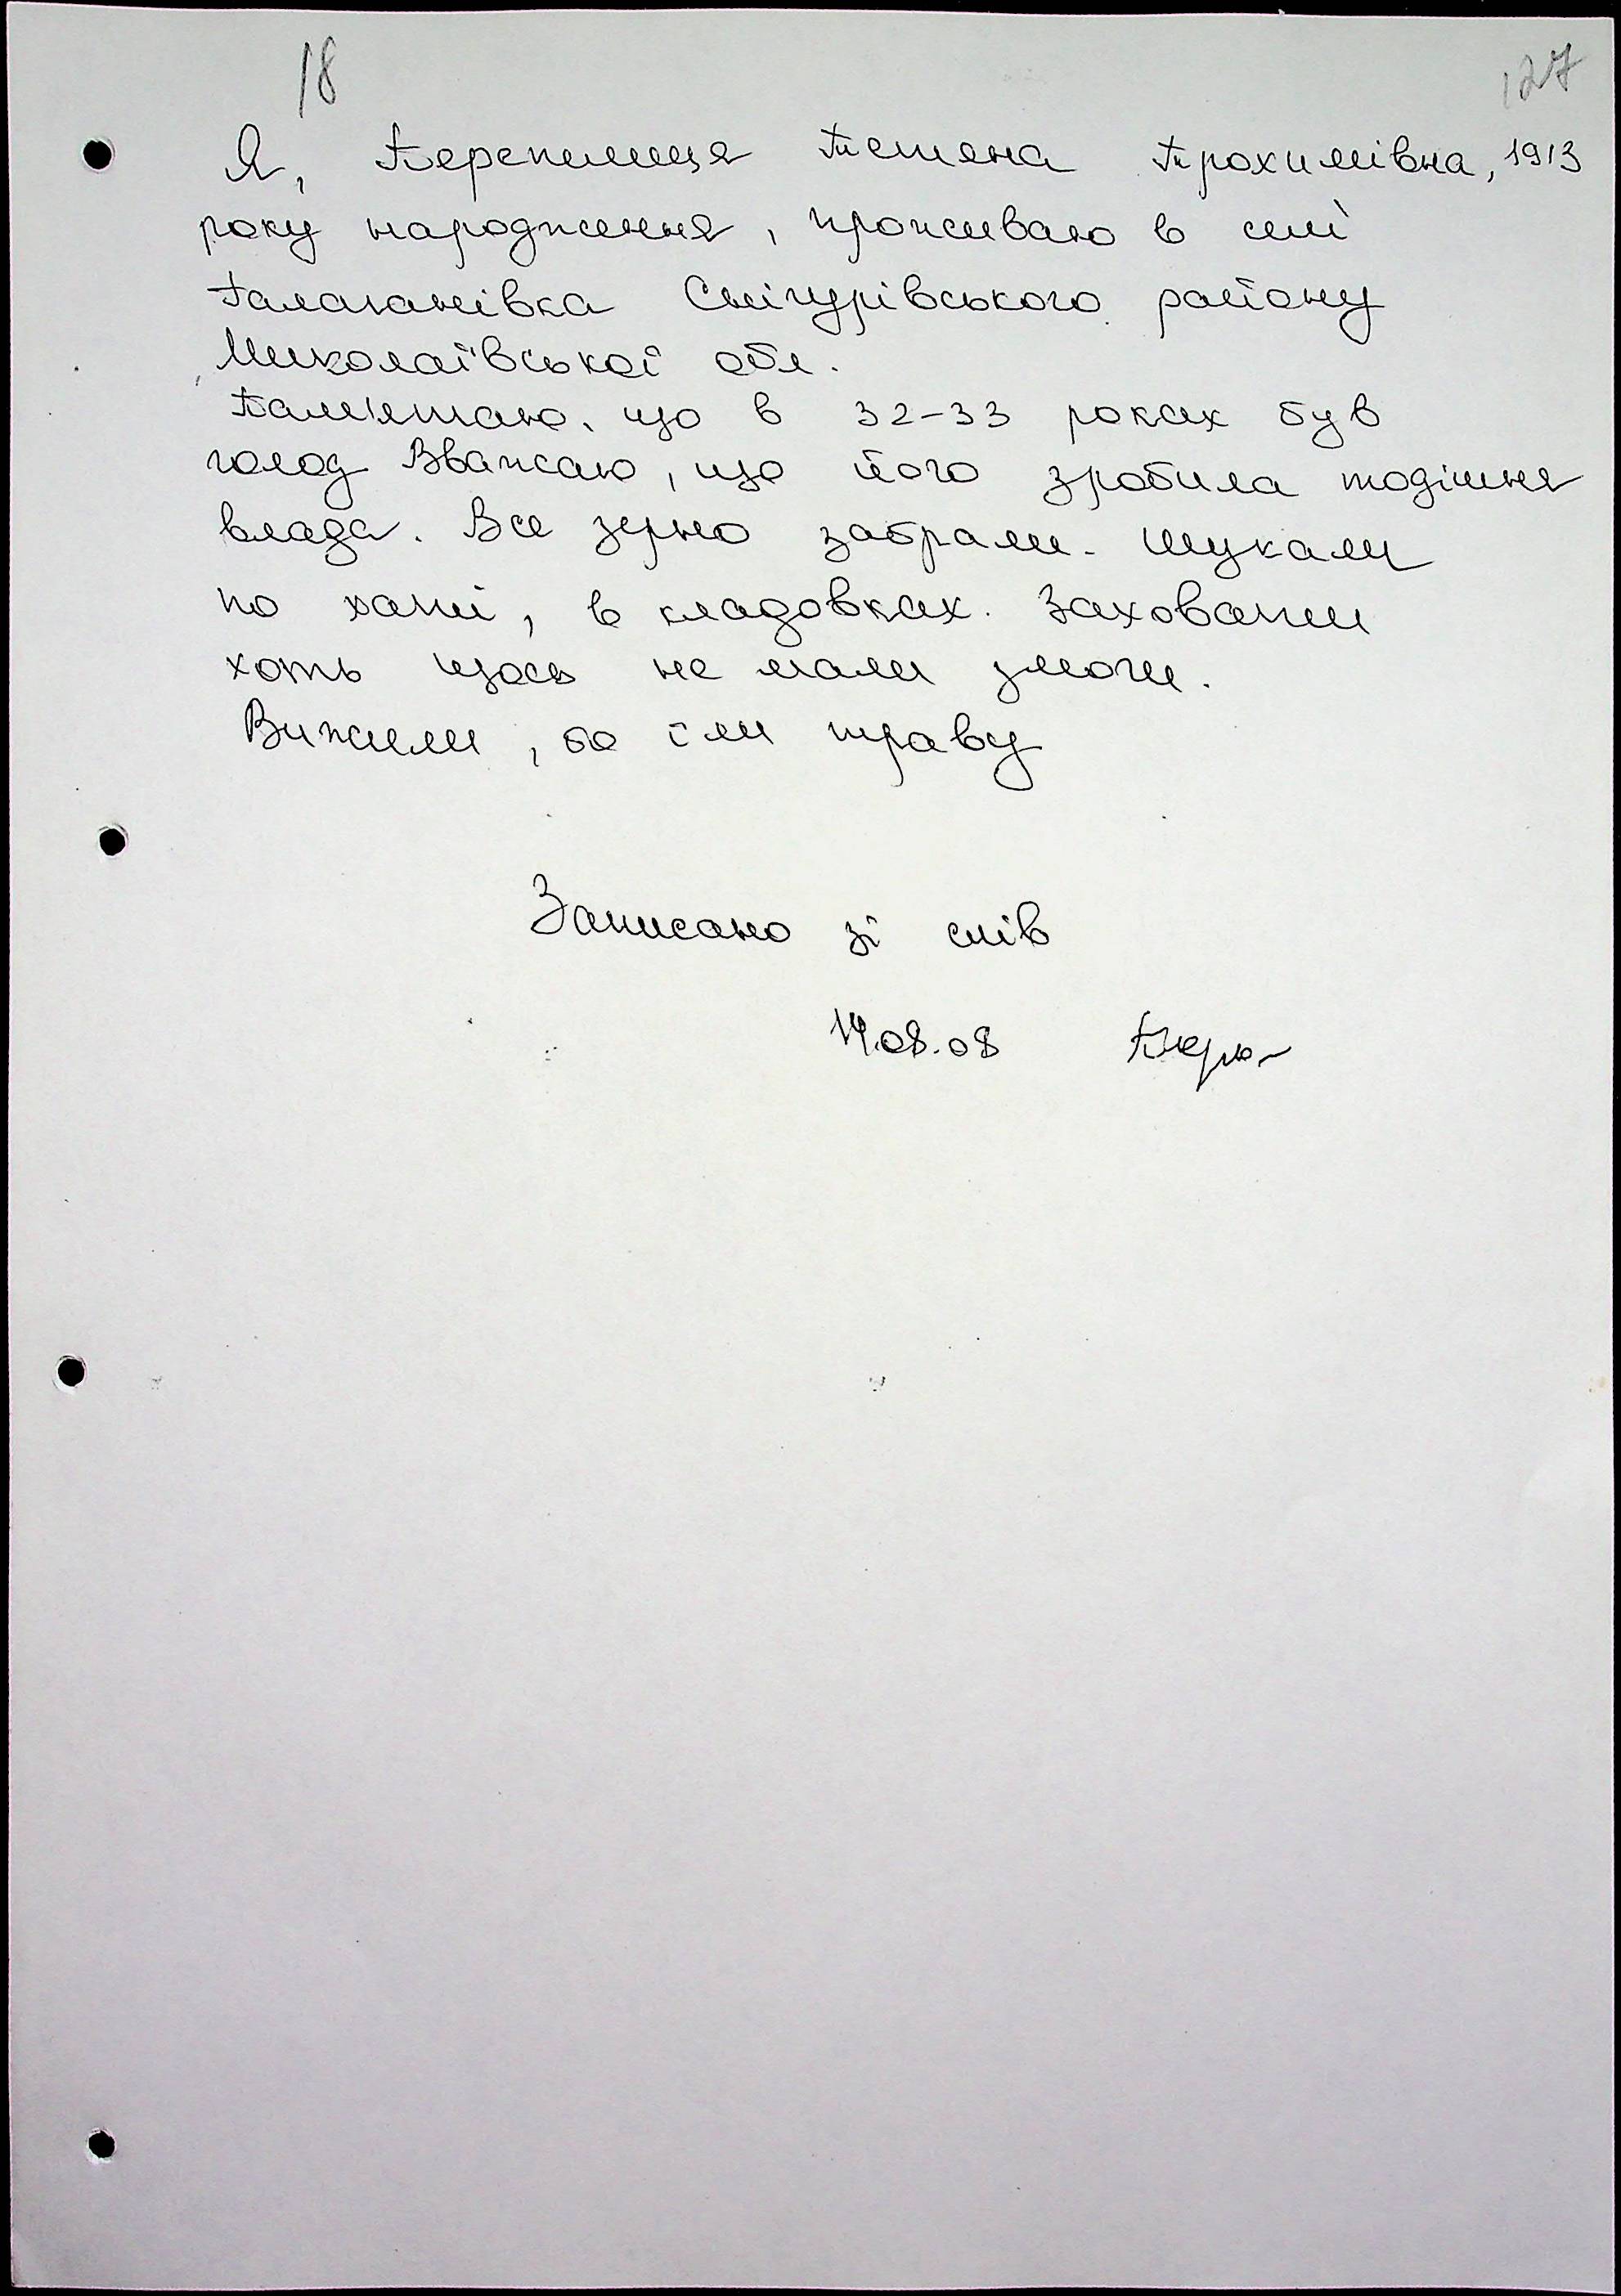 18
127
Я, Перепелиця Тетяна Трохимівна, 1913
року народження, проживаю в селі
Галаганівка Снігурівського району
Миколаївської обл.
Пам'ятаю, що в 32-33 роках був
голод Вважаю, що його зробила тодішня
влада. Все зерно забрали. Шукали
по хаті, в кладовках. Заховати
хоть щось не мали змоги.
Вижили, бо їли траву
Записано зі слів
14.08.08